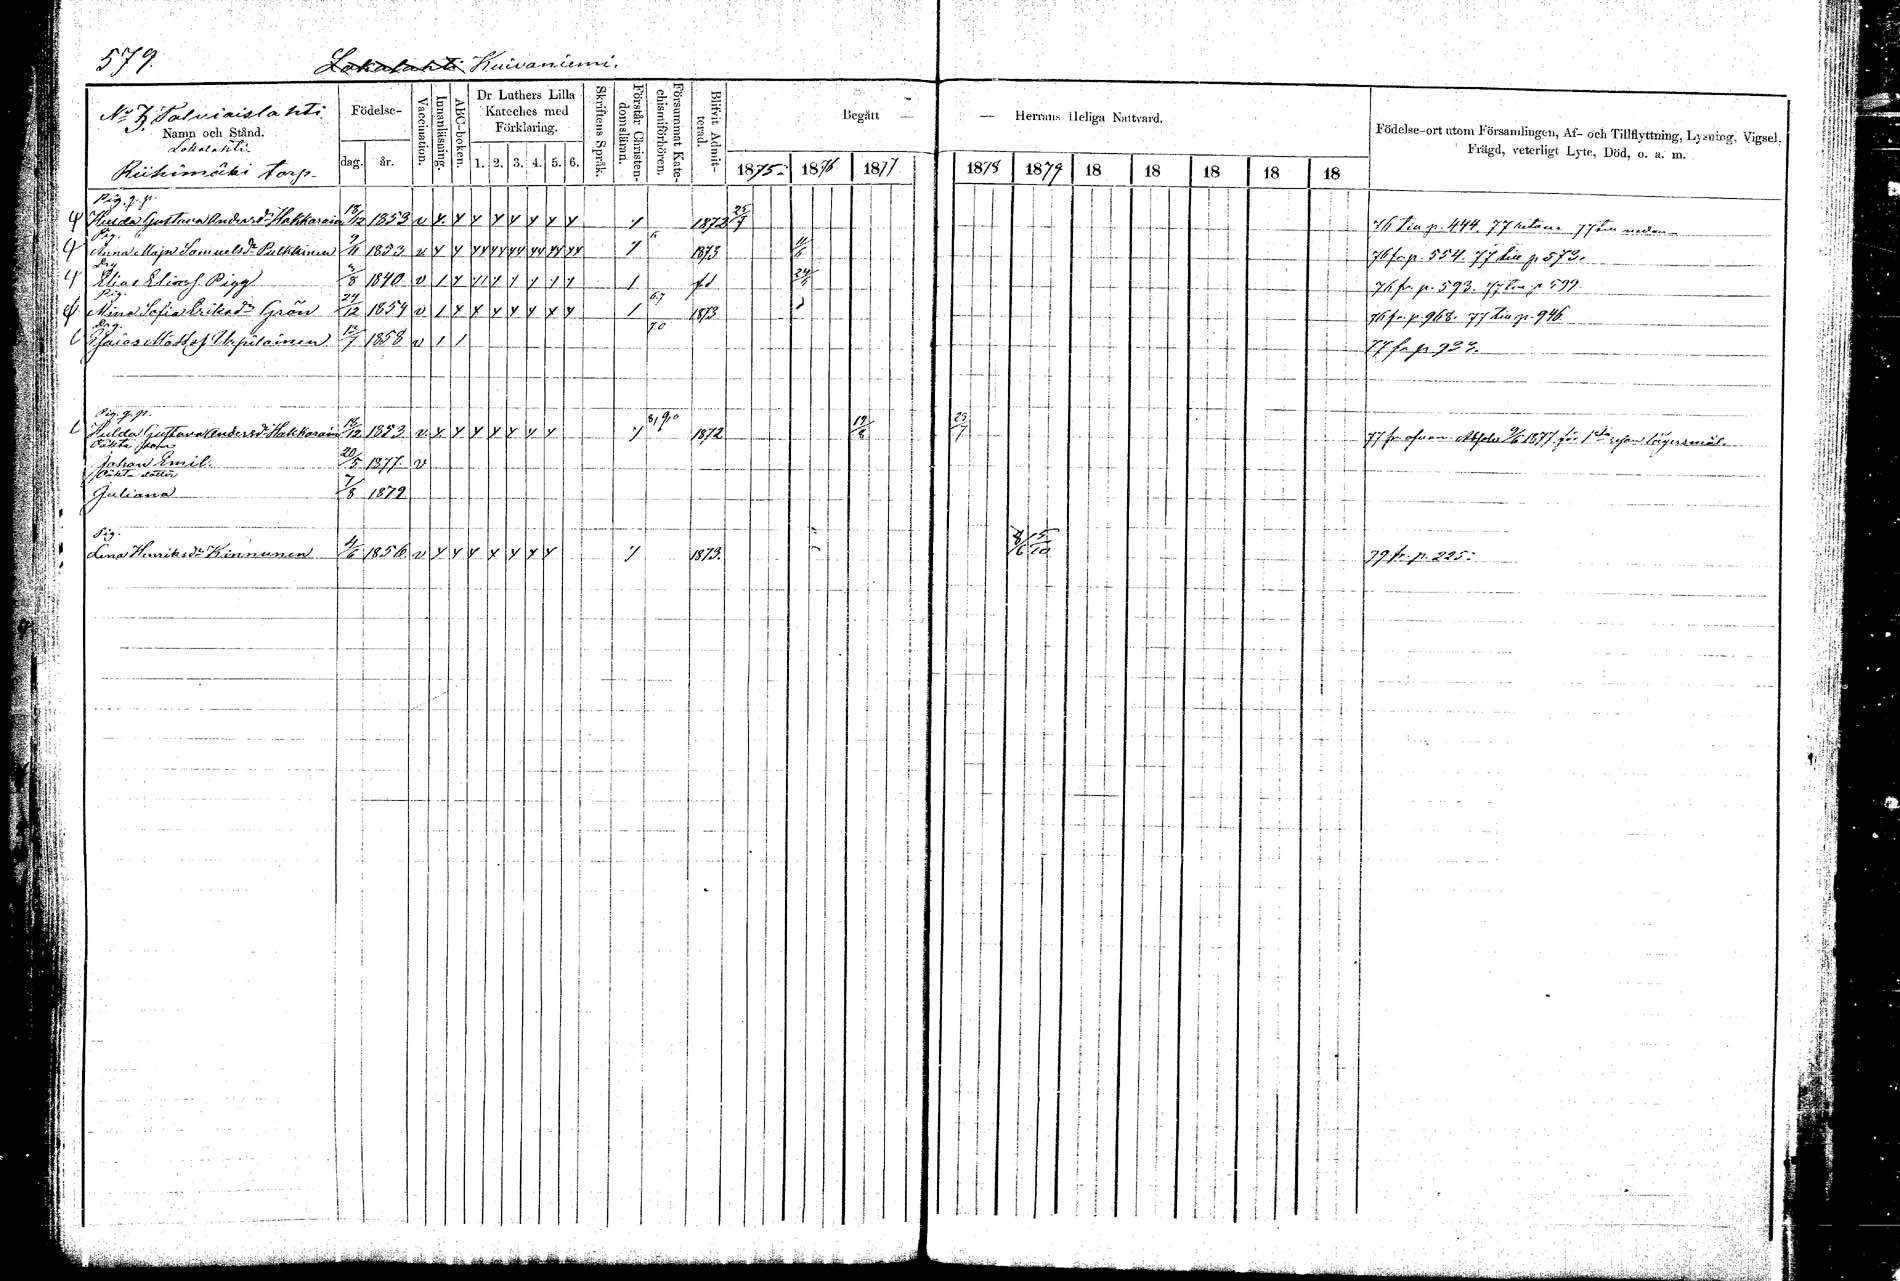 579.
Lokalahti Kuivaniemi.
No 3. Talviaislahti
Namn och Stånd.
Lokalahti
Riihimäki torp
Födelse-
dag. år.
Vaccination.
Innanläsning.
ABC-boken.
Dr Luthers Lilla Kateches med Förklaring.
1. 2. 3. 4. 5. 6.
Skriftens Språk.
Förstår Christendomsläran.
Försummat Katechismiförhören.
Blifvit Admitterad.
Begått — — Herrans Heliga Nattvard.
1875 1876 1877 1878 1879 18 18 18 18 18
Födelse-ort utom Församlingen, Af- och Tillflyttning, Lysning, Vigsel, Frägd, veterligt Lyte, Död, o. a. m.
Pig. q. p.
Hulda Gustava Andersdr Hakkarain 18/12 1853 v 1872 25/7 76 tin p. 444. 77 retour 77 tin nedan
Pig.
Anna Maja Samuelsdr Pulkkinen 9/11 1853 v 1873 11/6 76 fr. p. 554. 77 tin p 573.
Drg
Elias Eliass. Pigg 3/8 1840 v fd 24/5 76 fr. p. 593. 77 tin p 599
Pig.
Mina Sofia Eriksdr Grön 24/12 1854 v 67 1873 76 fr. p. 968. 77 tin p. 946
Drg.
Esaias Matts. Urpilainen 12/7 1858 v 70 77 fr p 927.
Pig. q. p.
Hulda Gustava Andersdr Hakkarain 18/12 1853. v. 8/9/0 1872 19/8 25/7 77 fr ofvan. Absolv 9/6 1877. för 1sta resan lägersmål.
Oäkta son
Johan Emil. 20/5 1877. v
Oäkta dotter
Juliana 7/8 1879
Pig.
Lena Henriksdr Kinnunen 4/6 1856 v 1873. 8/6 5/10 79 fr. p. 225.